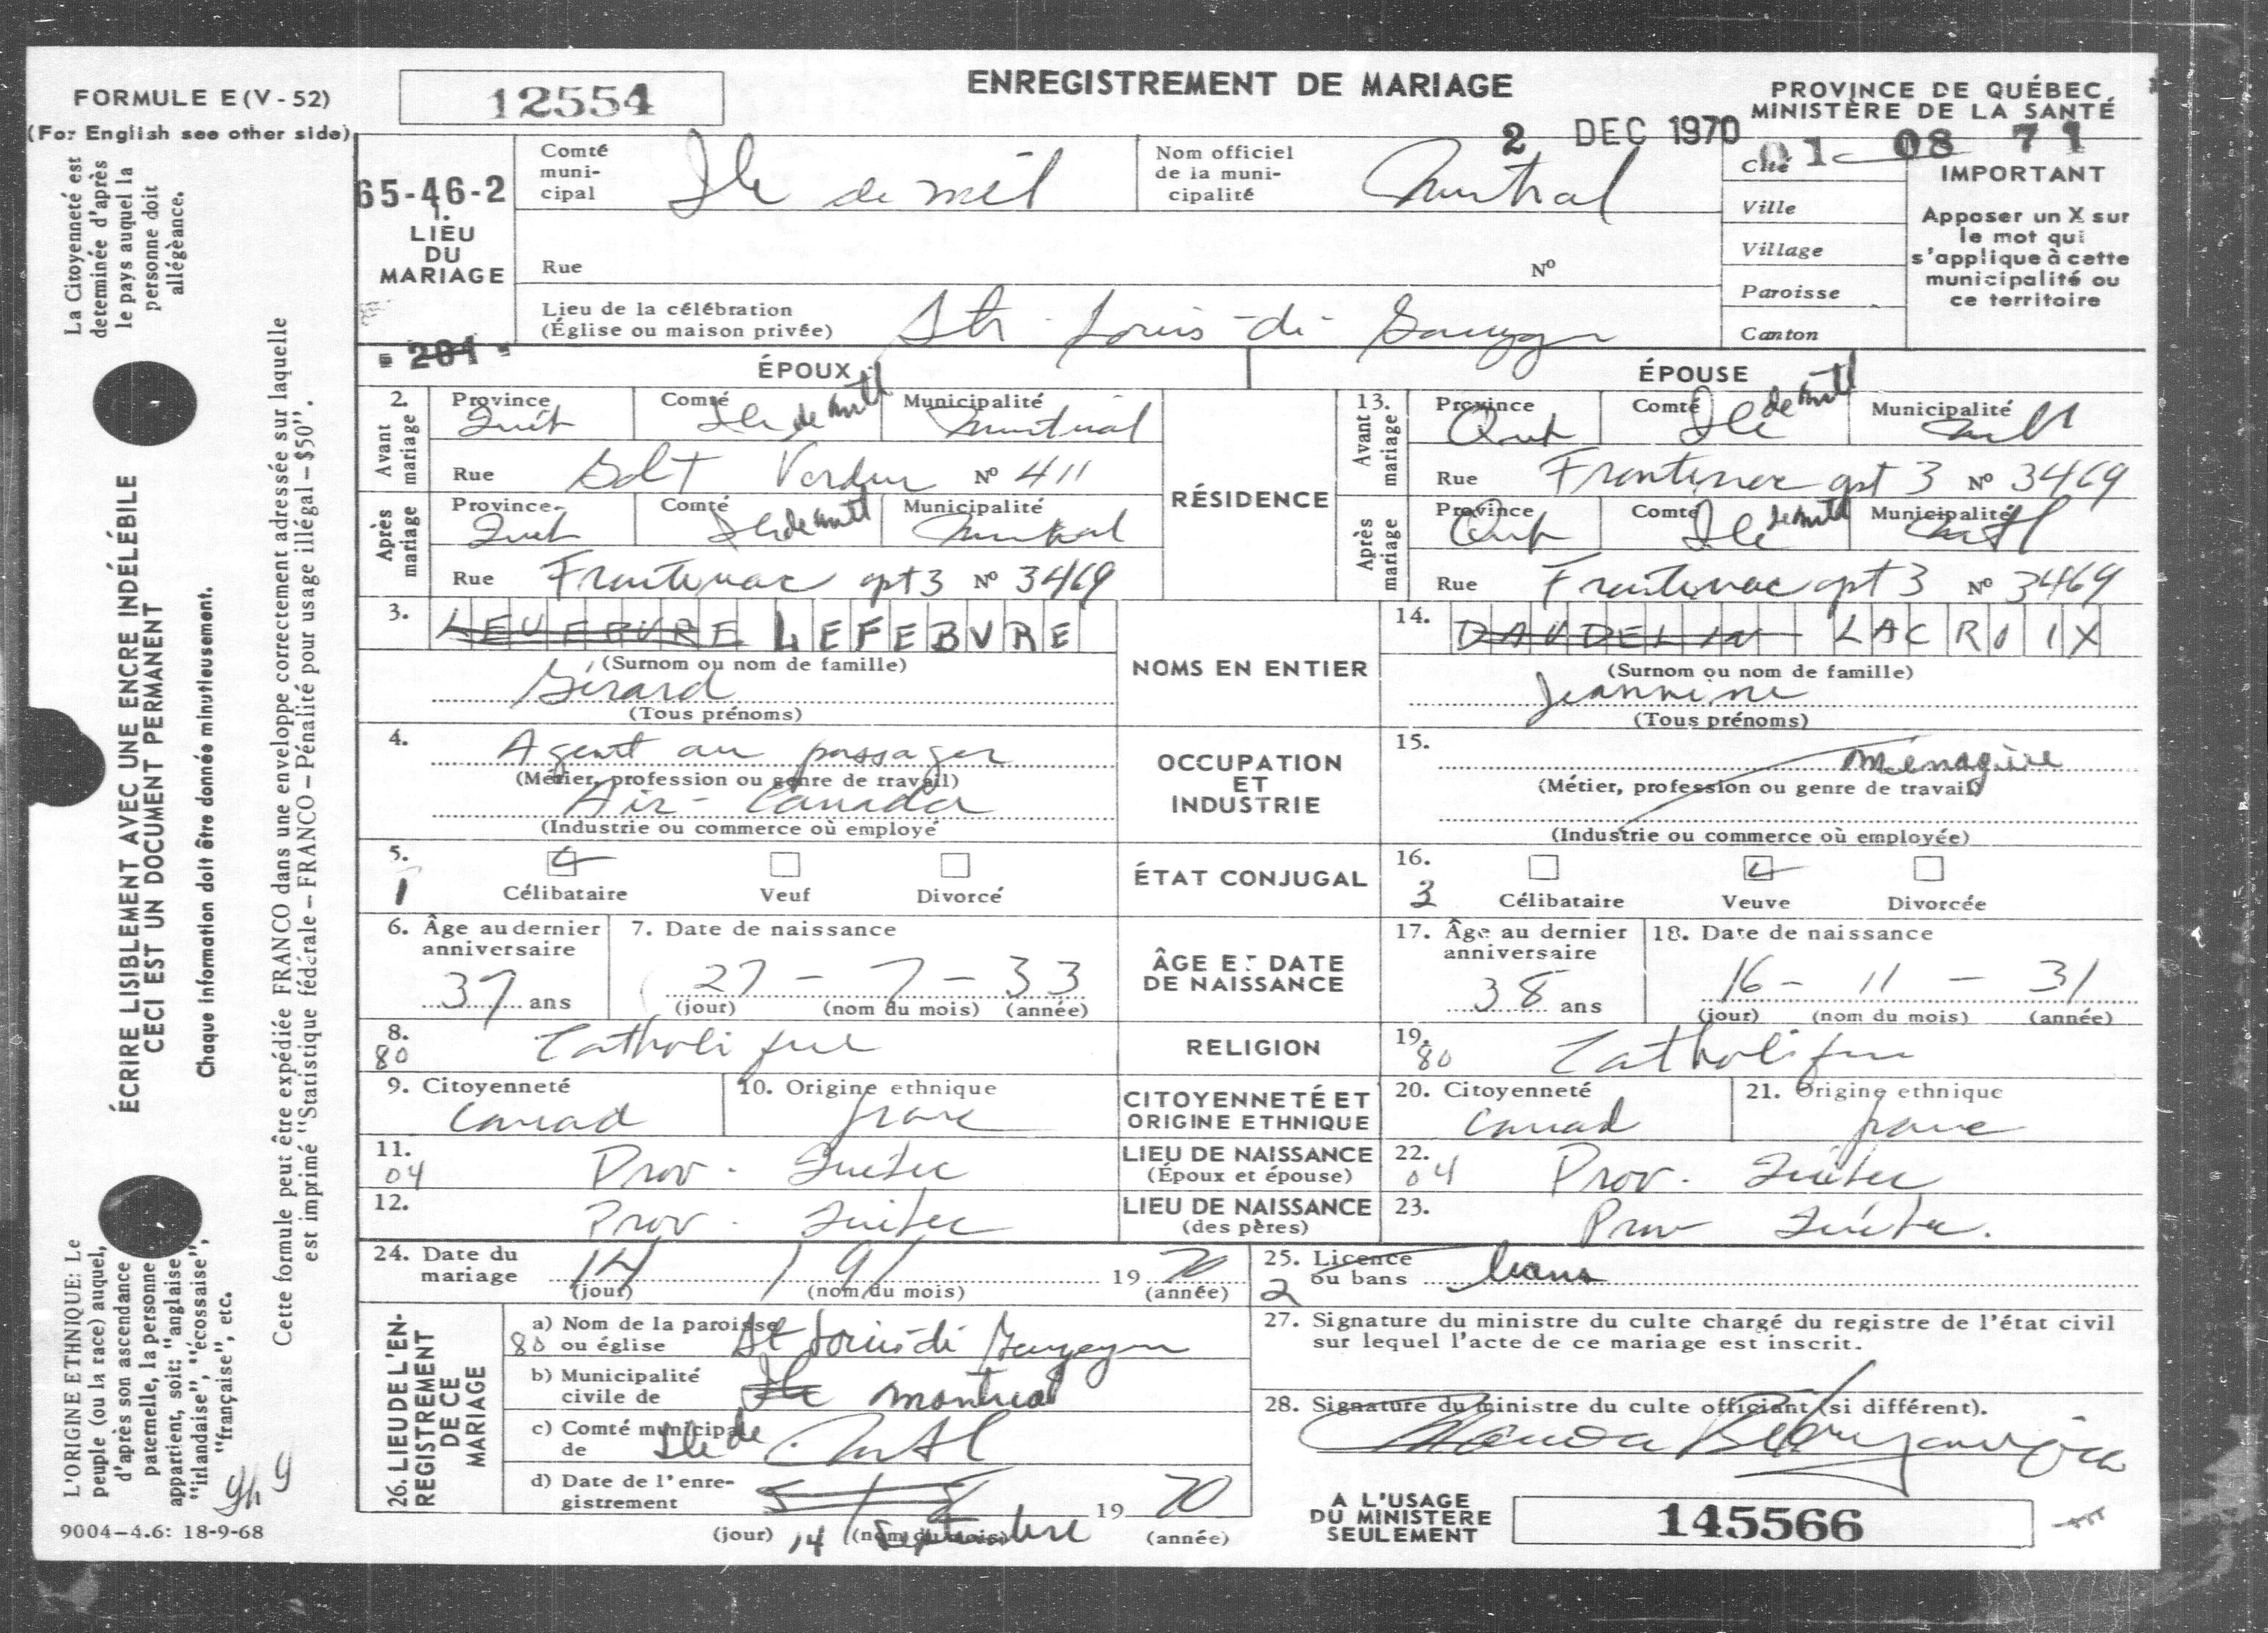 FORMULE E (V - 52)
(For English see other side)
12554
ENREGISTREMENT DE MARIAGE
PROVINCE DE QUÉBEC
MINISTÈRE DE LA SANTÉ
2 DEC 1970
01 08 71
65-46-2
1. LIEU DU MARIAGE
Comté municipal Ile de mtl
Nom officiel de la municipalité Montreal
Cité
Ville
Village
Paroisse
Canton
IMPORTANT
Apposer un X sur
le mot qui
s'applique à cette
municipalité ou
ce territoire
Rue
Nº
Lieu de la célébration
(Église ou maison privée) St Louis-de-Gonzague
- 201 -
ÉPOUX
ÉPOUSE
2. Avant mariage
Province Québ Comté Ile de Mtl Municipalité Montreal
Rue Verdun Nº 411
Après mariage
Province Québ Comté Ile de Mtl Municipalité Montreal
Rue Frontenac apt 3 Nº 3469
RÉSIDENCE
13. Avant mariage
Province Qué Comté Ile de Mtl Municipalité Mtl
Rue Frontenac apt 3 Nº 3469
Après mariage
Province Qué Comté Ile de Mtl Municipalité Mtl
Rue Frontenac apt 3 Nº 3469
3. LEFEBVRE
(Surnom ou nom de famille)
Gérard
(Tous prénoms)
NOMS EN ENTIER
14. DAUDELIN LACROIX
(Surnom ou nom de famille)
Jeannine
(Tous prénoms)
4. Agent au passager
(Métier, profession ou genre de travail)
Air-Canada
(Industrie ou commerce où employé
OCCUPATION
ET
INDUSTRIE
15. Ménagère
(Métier, profession ou genre de travail)
(Industrie ou commerce où employée)
5. 1
Célibataire Veuf Divorcé
ÉTAT CONJUGAL
16. 3
Célibataire Veuve Divorcée
6. Âge au dernier
anniversaire
37 ans
7. Date de naissance
27 - 7 - 33
(jour) (nom du mois) (année)
ÂGE ET DATE
DE NAISSANCE
17. Âge au dernier
anniversaire
38 ans
18. Date de naissance
16 - 11 - 31
(jour) (nom du mois) (année)
8. 80 Catholique
RELIGION
19. 80 Catholique
9. Citoyenneté
Canad
10. Origine ethnique
franc
CITOYENNETÉ ET
ORIGINE ETHNIQUE
20. Citoyenneté
Canad
21. Origine ethnique
franc
11. 04 Prov. Québec
LIEU DE NAISSANCE
(Époux et épouse)
22. 04 Prov. Québec
12. Prov. Québec
LIEU DE NAISSANCE
(des pères)
23. Prov Québec.
24. Date du
mariage 14 / 9 / 19 70
(jour) (nom du mois) (année)
25. Licence
ou bans bans
2
26. LIEU DE L'EN-
REGISTREMENT
DE CE
MARIAGE
a) Nom de la paroisse
80 ou église St Louis de Gonzague
b) Municipalité
civile de Ile Montreal
c) Comté municipal
de Ile de Mtl
d) Date de l'enre-
gistrement 19 70
(jour) 14 (nom du mois) Septembre (année)
27. Signature du ministre du culte chargé du registre de l'état civil
sur lequel l'acte de ce mariage est inscrit.
28. Signature du ministre du culte officiant (si différent).
A L'USAGE
DU MINISTERE
SEULEMENT
145566
La Citoyenneté est
determinée d'après
le pays auquel la
personne doit
allégéance.
ÉCRIRE LISIBLEMENT AVEC UNE ENCRE INDÉLÉBILE
CECI EST UN DOCUMENT PERMANENT
Chaque information doit être donnée minutieusement.
Cette formule peut être expédiée FRANCO dans une enveloppe correctement adressée sur laquelle
est imprimé "Statistique fédérale - FRANCO - Pénalité pour usage illégal - $50".
L'ORIGINE ETHNIQUE: Le
peuple (ou la race) auquel,
d'après son ascendance
paternelle, la personne
appartient, soit: "anglaise",
"irlandaise", "écossaise",
"française", etc.
9004-4.6: 18-9-68